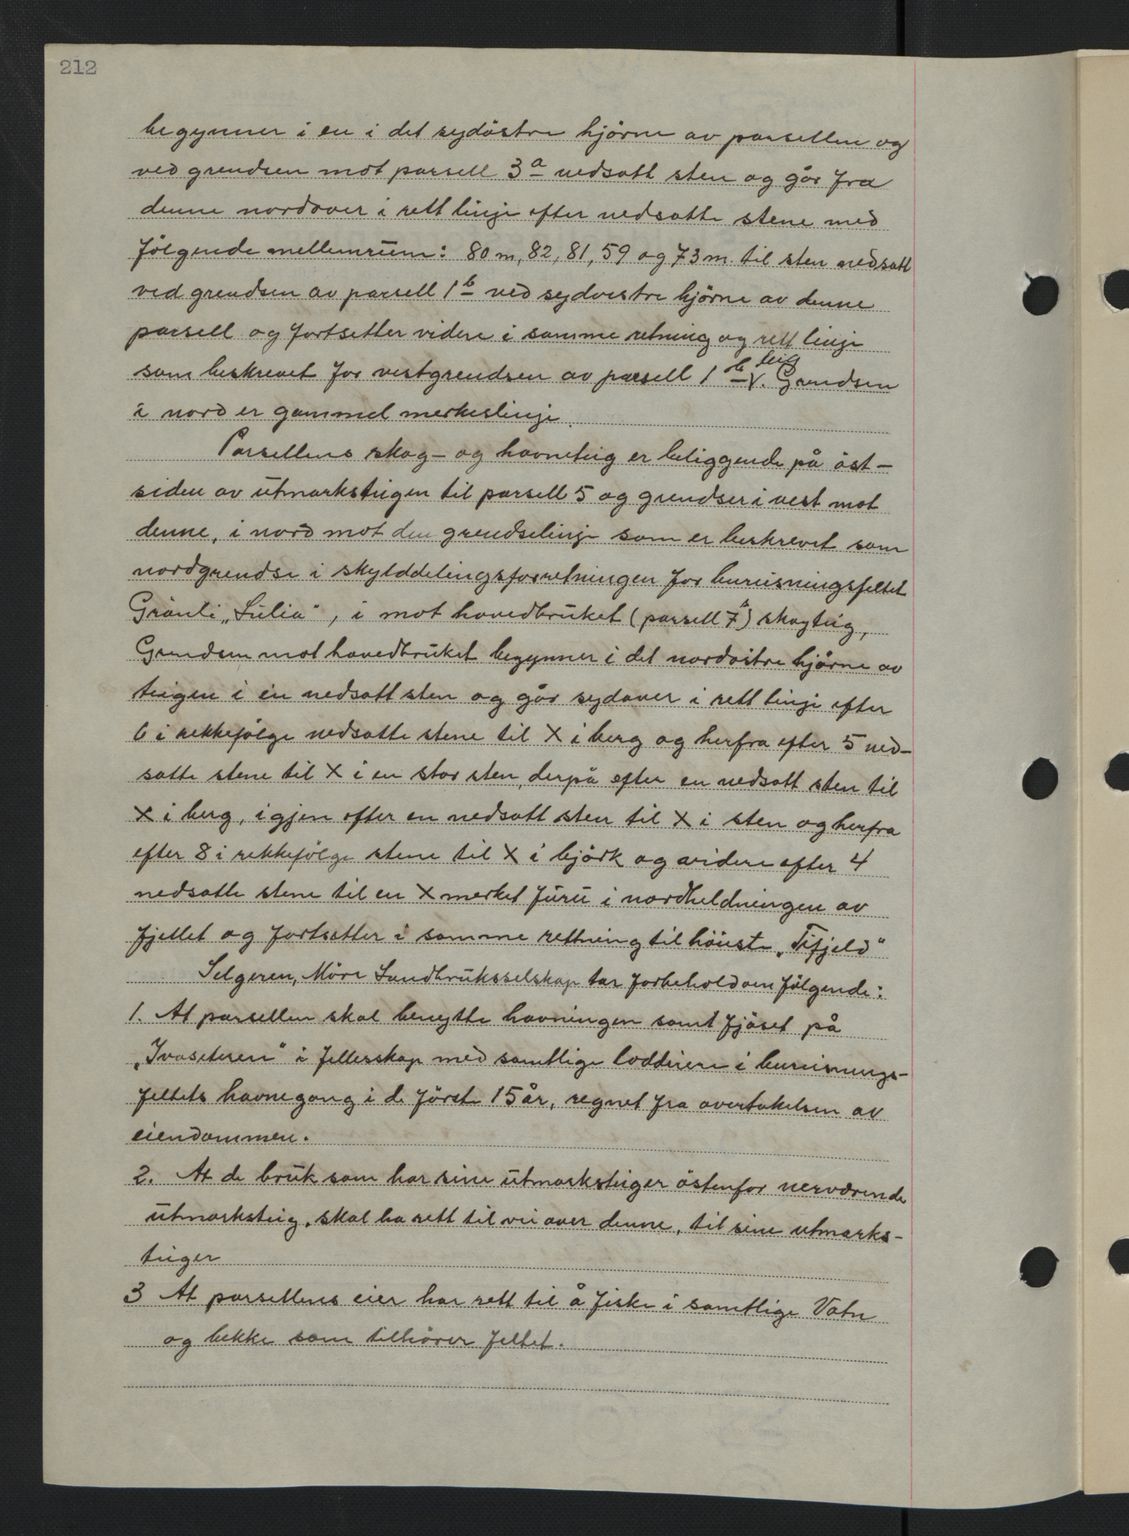 212
begynner i en i det sydöstre hjörne av parsellen og
ved grendsen mot parsell 3a nedsatt sten og går fra
denne nordover i rett linje efter nedsatte stene med
fölgende mellemrum: 80 m, 82, 81, 59 og 73 m. til sten nedsatt
ved grendsen av parsell 1b ved sydvestre hjörne av denne
parsell og fortsetter videre i samme retning og rett linje
som beskrevet for vestgrendsen av parsell 1b teig. Grendsen
i nord er gammel merkeslinje.
Parsellens skog- og havneteig er beliggende på öst-
siden av utmarksteigen til parsell 5 og grendser i vest mot
denne, i nord mot den grendselinje som er beskrevet som
nordgrendse i skylddelingsforretningen for bureisningsfeltet
Grönli „Sulia", i mot hovedbruket (parsell 7b) skogteig,
Grendsen mot hovedbruket begynner i det nordöstre hjörne av
teigen i én nedsatt sten og går sydover i rett linje efter
6 i rekkefölge nedsatte stene til X i berg og herfra efter 5 ned-
satte stene til X i en stor sten, derpå efter en nedsatt sten til
X i berg, igjen efter en nedsatt sten til X i sten og herfra
efter 8 i rekkefölge stene til X i björk og videre efter 4
nedsatte stene til en X merket furu i nordheldningen av
fjellet og fortsetter i samme rettning til höieste „Tifjeld"
Selgeren, Möre Landbruksselskap tar forbehold om fölgende:
1. At parsellen skal benytte havningen samt fjöset på
„Ivaseteren" i fellesskap med samtlige loddeiere i bureisnings-
feltets havnegang i de förste 15 år, regnet fra overtakelsen av
eiendommen.
2. At de bruk som har sine utmarksteiger östenfor nerværende
utmarksteig, skal ha rett til vei over denne, til sine utmarks-
teiger
3 At parsellens eier har rett til å fiske i samtlige Vatn
og bekke som tilhörer feltet.